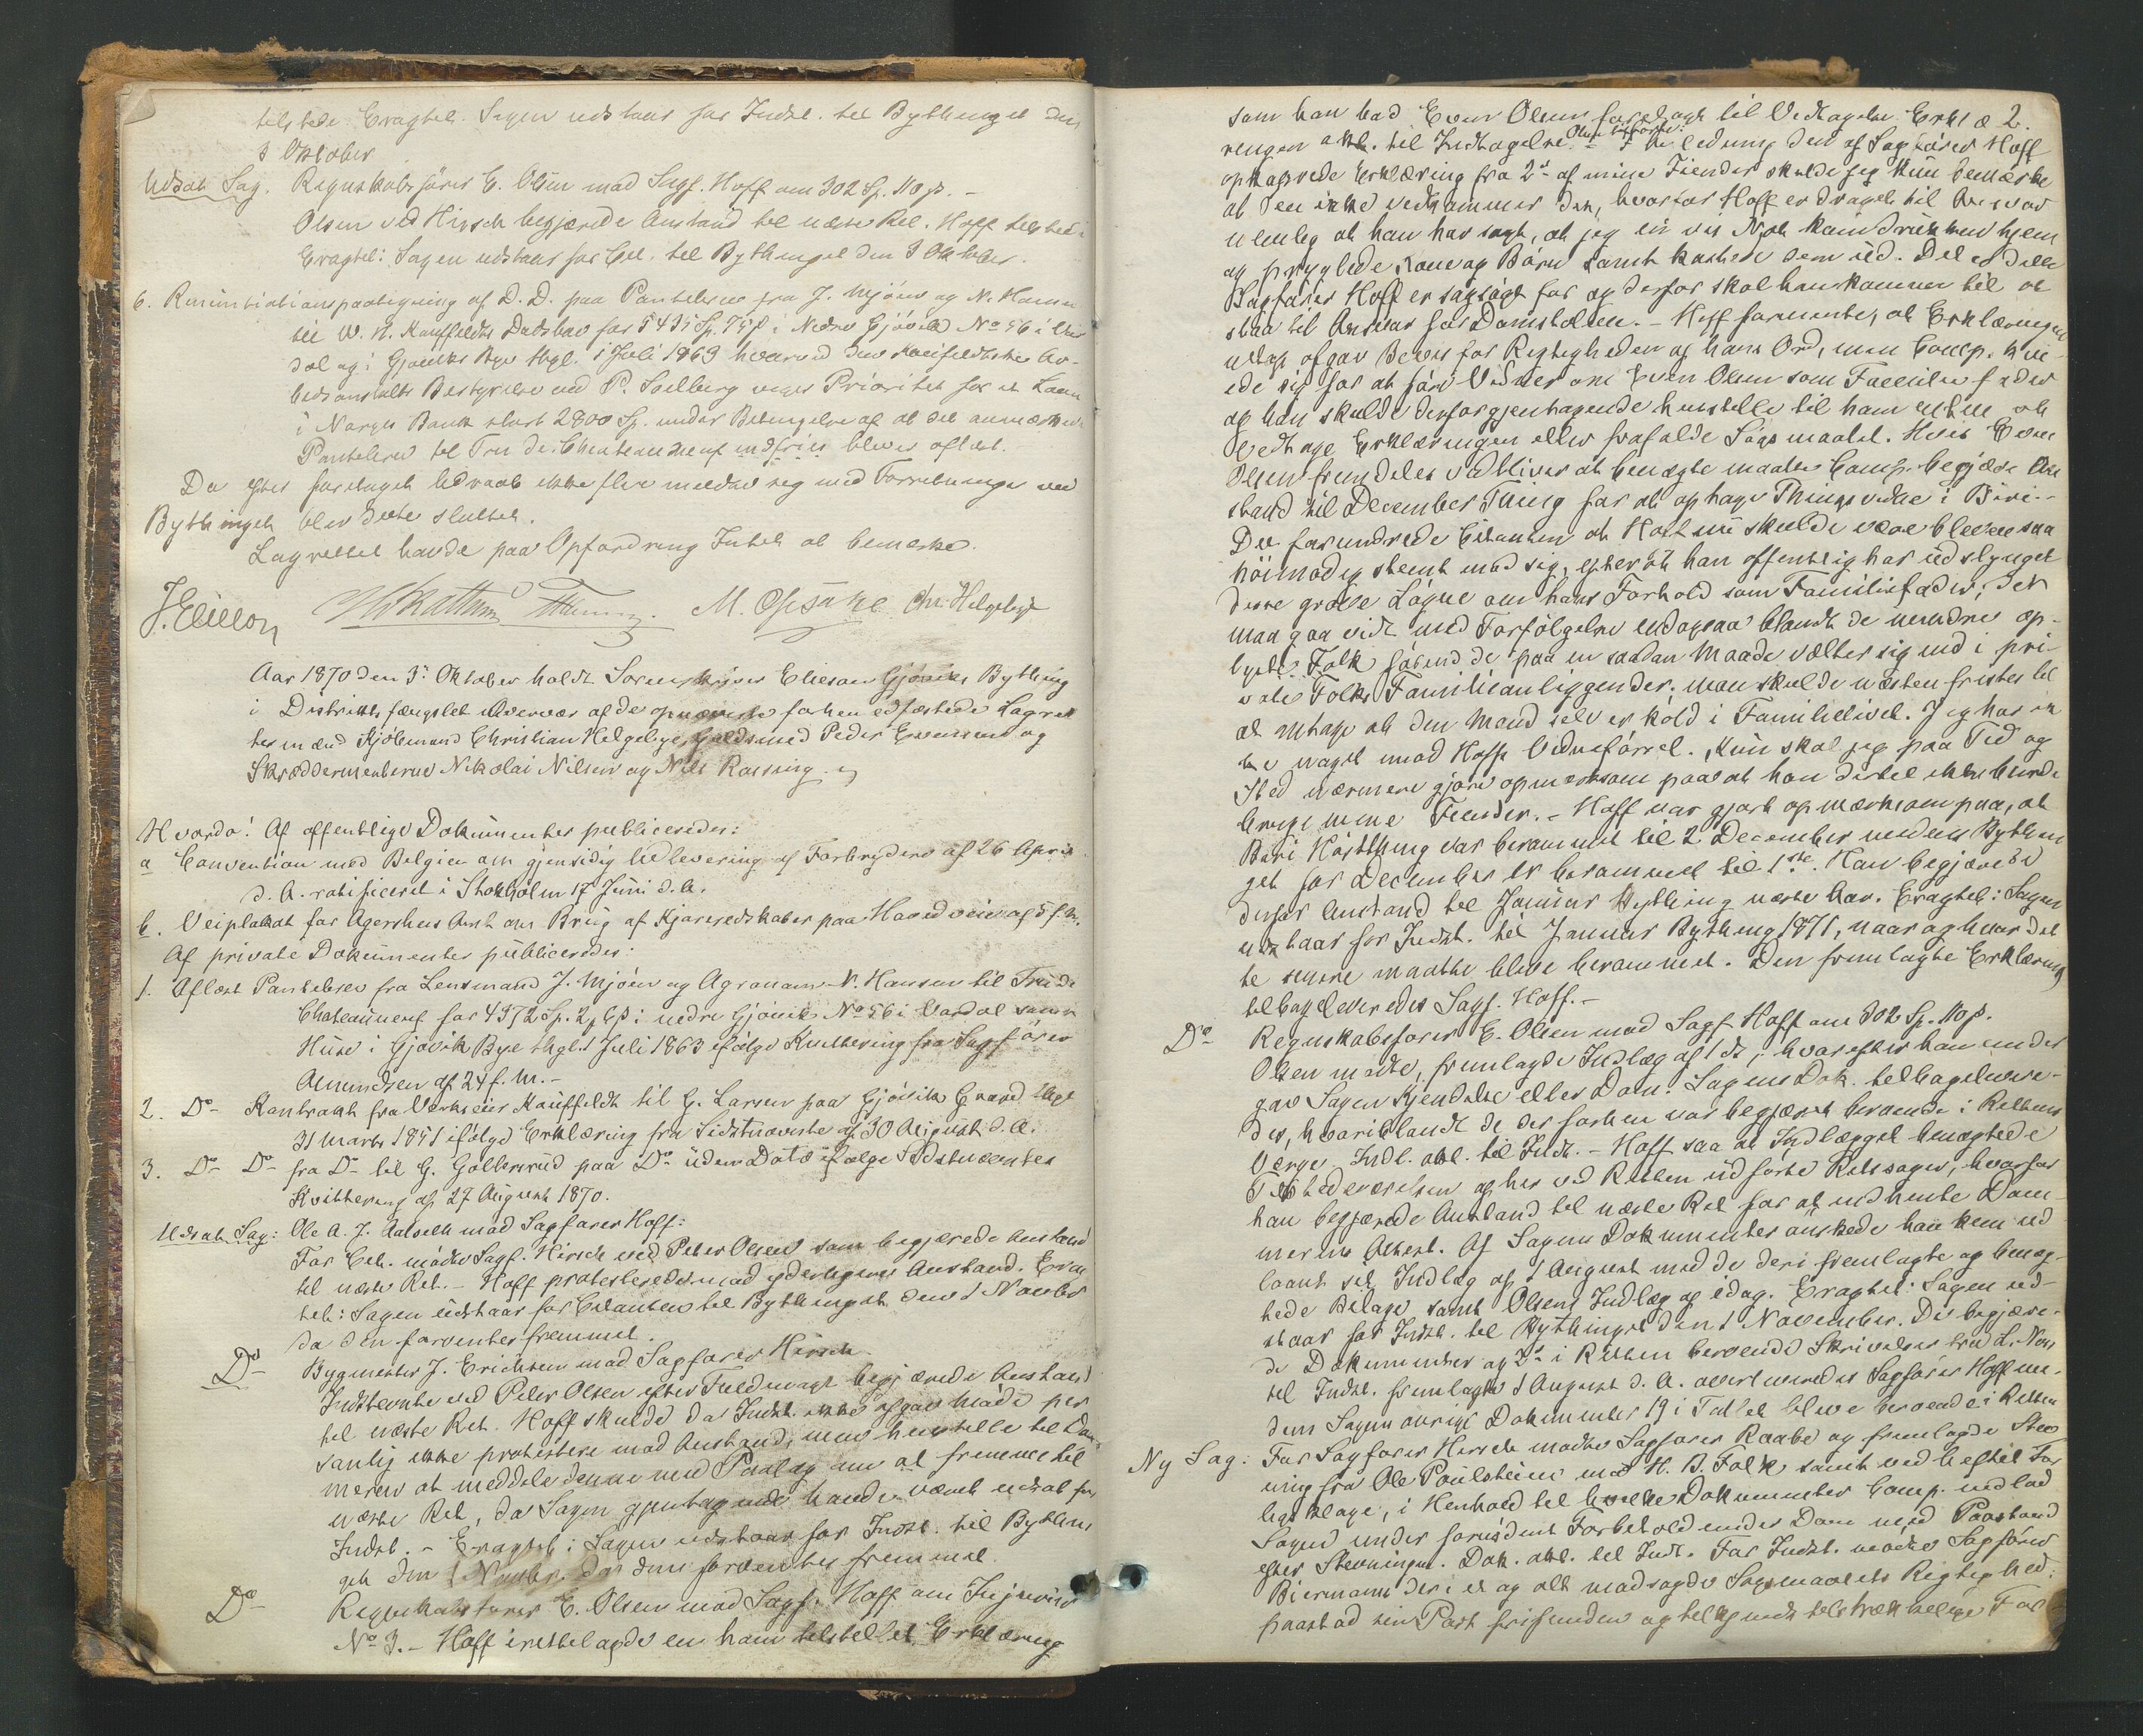 tilstede Eragtet. Sagen udstaaer for Indst. til Bythinget den
3 Oktober
Udsat Sag. Regnskabsfører E. Olsen mod Sagf. Hoff om 302 Sp. 110 s. -
Olsen ved Hirsch begjærede Anstand til næste Ret. Hoff tilstede.
Eragtet: Sagen udstaaer for Cit. til Bythinget den 3 Oktober.
6. Renuntiationspaategning af D. D. paa Pantebrev fra J. Mjøen og N. Hansen
til W. N. Kauffeldts Dødsbo for 5435 Sp. 75 s i Nedre Gjøvik No 56 i Var-
dal og i Gjøviks Bye thgl. 1 Juli 1863 hvorved den Kauffeldtske Ar-
beidsanstalts Bestyrelse ved P. Soelberg viger Prioritet for et Laan
i Norges Bank stort 2800 Sp. under Betingelse af at det anmærkede
Pantebrev til Tru de Chateauneuf indfries blev oplæst.
Da efter foretaget Udraab ikke flere meldte sig med Forretninger ved
Bythinget blev dette sluttet.
Lagrettet havde paa Opfordring Intet at bemærke.
J. Elieson M. Opsahl Chr. Helgebye
Aar 1870 den 3die Oktober holdt Sorenskriver Elieson Gjøviks Bything
i Distriktsfængslet i Overvær af de opnævnte forhen edfæstede Lagret-
tesmænd Kjøbmand Christian Helgebye, Guldsmed Peder Evensen og
Skræddermesterne Nikolai Nilsen og Nils Rossing.
Hvorda: Af offentlige Dokumenter publiceredes:
a Convention med Belgien om gjensidig Udlevering af Forbrydere af 26 April
d. A. ratificeret i Stokholm 17 Juni d. A.
b. Veiplakat for Agershus Amt om Brug af Kjøreredskaber paa Hovedveie af 5 f. M.
Af private Dokumenter publiceredes:
1. Aflæst Pantebrev fra Lensmand J. Mjøen og Agronom N. Hansen til Tru de
Chateauneuf for 4372 Sp. 2 s i nedre Gjøvik No 56 i Vardal samt
Huse i Gjøvik Bye thgl. 1 Juli 1863 ifølge Kvittering fra Sagfører
Amundsen af 24 f. M. -
2. Do Kontrakt fra Værkseier Kauffeldt til G. Larsen paa Gjøvik Gaard thgl.
31 Marts 1851 ifølge Erklæring fra Sidstnævnte af 30 August d. A.
3. Do Do fra Do til G. Gollerud paa Do uden Dato ifølge Sidstnævntes
Kvittering af 27 August 1870.
Udsat Sag: Ole A. J. Aalvelt mod Sagfører Hoff:
For Cit. mødte Sagf. Hirsch ved Peter Olsen som begjærede Anstand
til næste Ret. - Hoff protesterede mod yderligere Anstand. Erag-
tet: Sagen udstaar for Citanten til Bythinget den 1 Novbr
da den forventes fremmet.
Do Bygmester J. Erichsen mod Sagfører Hirsch
Indstevnte ved Peter Olsen efter Fuldmagt begjærede Anstand
til næste Ret. Hoff skulde da Indst. ikke afgav Møde per-
sonlig ikke protestere mod Anstand, men henstille til Dom-
meren at meddele denne med Paalæg om at fremme til
næste Ret, da Sagen gjentagende havde været udsat for
Indst. - Eragtet: Sagen udstaar for Indst. til Bythin-
get den 1 Novbr. da den forventes fremmet.
Do Regnskabsfører E. Olsen mod Sagf. Hoff om Injurier
No 3. - Hoff irettelagde en ham tilstillet Erklæring
2.
som han bad Even Olsen forelagt til Vedtagelse. Erklæ-
ringen akt. til Indtagelse. Olsen tilførte: I Anledning den af Sagfører Hoff
opkastede Erklæring fra 2de af mine Fiender skulde jeg kun bemærke
at den ikke vedkommer den, hvorfor Hoff er draget til Ansvar
nemlig at han har sagt, at jeg en vis Nat kom drukken hjem
og pryglede Kone og Børn samt kastede dem ud. Det er dette
Sagfører Hoff er sagsøgt for og derfor skal han komme til at
staa til Ansvar for Domstolen. - Hoff formente, at Erklæringen
netop afgav Bevis for Rigtigheden af hans Ord, men Comp. tvi-
ede sig for at føre Vidner om Even Olsen som Familiefader
og han skulde derfor gjentagende henstille til ham enten at
vedtage Erklæringen eller frafalde Søgsmaalet. Hvis Even
Olsen fremdeles vedbliver at benægte maatte Comp. begjære An-
stand til December Thing for at optage Thingsvidne i Biri. -
Det forundrede Citanten at Hoff nu skulde være bleven saa
høimodig stemt mod sig, efter at han offentlig har udslynget
denne grove Løgne om hans Forhold som Familiefader; det
maa gaa vidt med Forfølgelse endogsaa blandt de mindre op-
lyste Folk førend de paa en saadan Maade vælter sig ind i pri-
vate Folks Familieanliggender; man skulde næsten fristes til
at antage at den Mand selv er kold i Familielivet. Jeg har ik-
ke noget mod Hoffs Vidneførsel. Kun skal jeg paa Tid og
Sted nærmere gjøre opmærksom paa at han dertil ikke burde
bruge mine Fiender. - Hoff var gjort opmærksom paa, at
Biri Høstthing var berammet til 2 December medens Bythin-
get for December er berammet til 1ste. Han begjærede
derfor Anstand til Januar Bything næste Aar. Eragtet: Sagen
udstaar for Indst. til Januar Bything 1871, naar og hvor det-
te senere maatte blive berammet. Den fremlagte Erklæring
tilbageleveredes Sagf. Hoff. -
Do Regnskabsfører E. Olsen mod Sagf. Hoff om 302 Sp. 110 s.
Olsen mødte, fremlagde Indlæg af 1 ds; hvorefter han under-
gav Sagen Kjendelse eller Dom. Sagens Dok. tilbagelevere-
des, hvoriblandt de der forhen var begjæret beroende i Rettens
Værge. Indl. akt. til Indt. - Hoff saa at Indlægget benægtede
Tilstedeværelsen af her ved Retten udførte Retssager, hvorfor
han begjærede Anstand til næste Ret for at indhente Dom-
merens Attest. Af Sagens Dokumenter ønskede han kun ud-
laant sit Indlæg af 1 August med de deri fremlagte og benæg-
tede Bilage samt Olsens Indlæg af idag. Eragtet: Sagen ud-
staar for Indst. til Bythinget den 1 November. De begjære-
de Dokumenter og 2de i Retten beroende Skrivelser fra
til Indst. fremlagte 1 August d. A. overleveredes Sagfører Hoff me-
dens Sagens øvrige Dokumenter 19 i Tallet bleve beroende i Retten
Ny Sag: For Sagfører Hirsch mødte Sagfører Raabe og fremlagde Stev-
ning fra Ole Poulsheim mod H. B. Falk samt vedheftet For-
ligsklage, i Henhold til hvilke Dokumenter Comp. indlod
Sagen under fornødent Forbehold under Dom med Paastand
efter Stevningen. Dok. akt. til Indt. For Indst. mødte Sagfører
Biermann der i et og alt modsagde Søgsmaalets Rigtighed,
paastod sin Part frifunden og tillagt tilstrækkelige For-